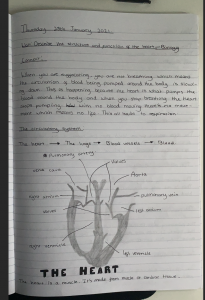 Thursday 28th January 2021
LO: Describe the structure and function of the heart - Biology
When you are suffocating, you are not breathing, which means
the circulation of blood being pumped around the body, is slowing
down. This is happening because the heart is what pumps the
blood around the body and when you stop breathing, the heart
stops pumping. With no blood moving
more, which means no
The circulatory system
The heart → The lungs → Blood vessels → Blood
Pulmonary artery
Valves
Vena cava
Aorta
right atrium
pulmonary vein
Valves
left atrium
right ventricle
left ventricle
THE HEART
The heart is a muscle. It's made from